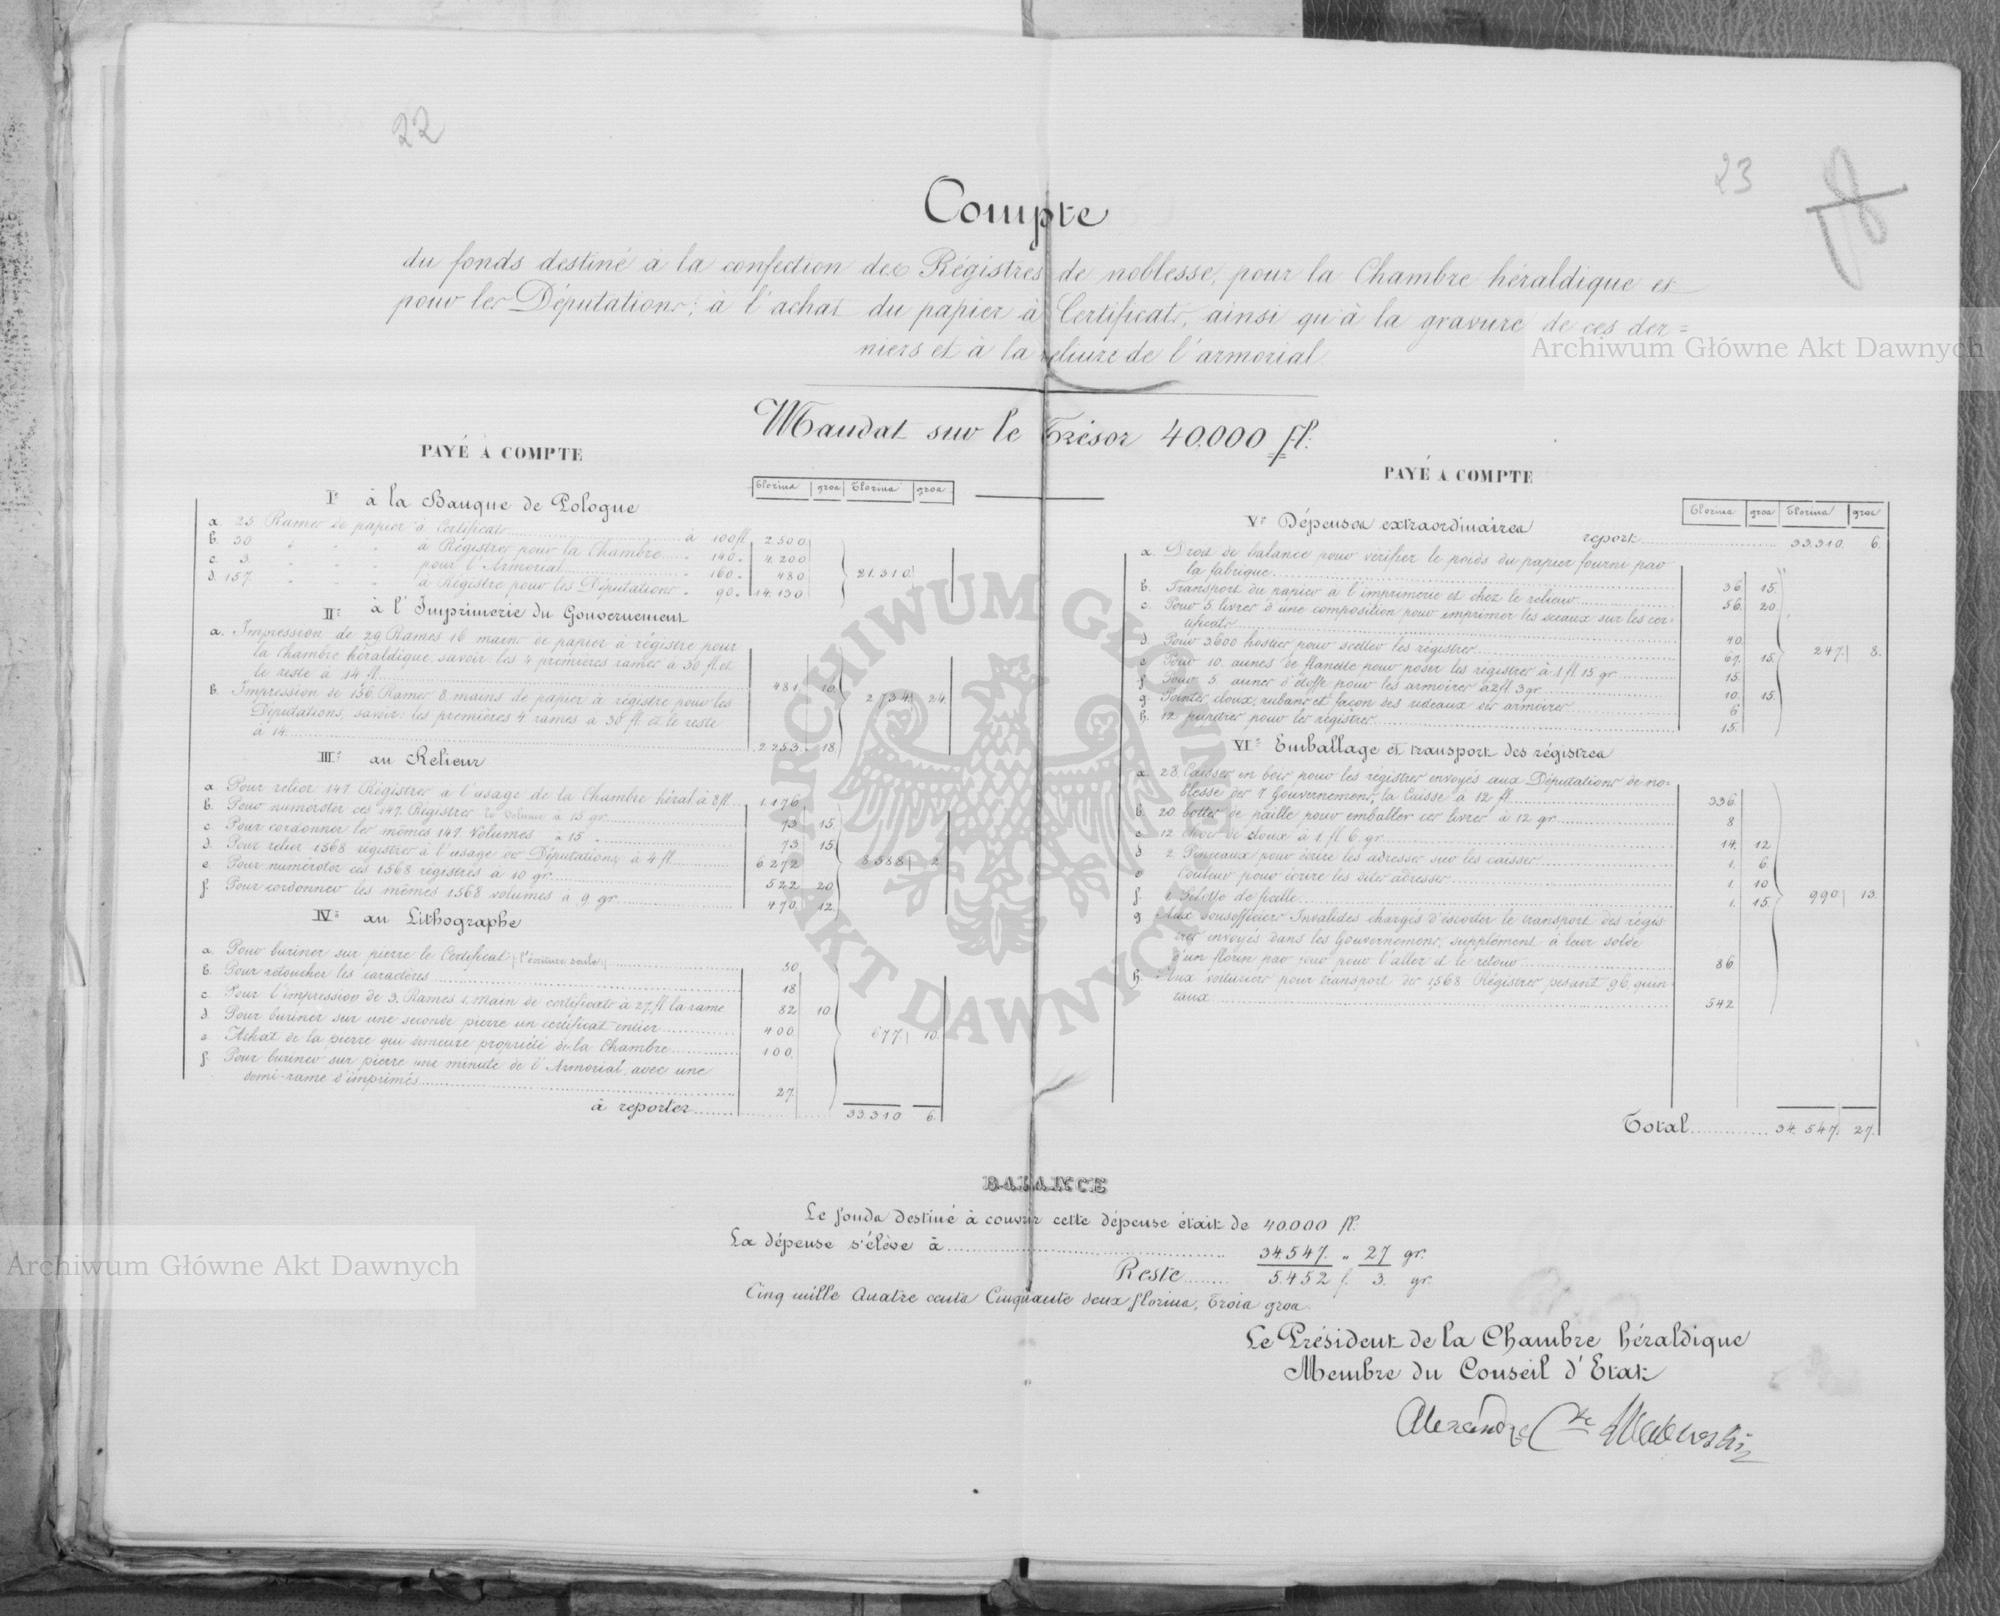 22
23
Compte
du fonds destiné à la confection des Régistres de noblesse, pour la Chambre héraldique et
pour les Députations; à l'achat du papier à Certificats, ainsi qu'à la gravure de ces der=
niers et à la reliure de l'armorial.
Mandat sur le Trésor 40.000 fl:
PAYÉ À COMPTE
Florins gros Florins gros
I° à la Banque de Pologne
a. 25 Rames de papier à Certificats à 100 fl 2.500
b. 30 " " " à Régistres pour la Chambre " 140 " 4.200
c. 3 " " " pour l'Armorial " 160 " 480 21.310
d. 157 " " " à Régistre pour les Députations " 90 " 14.130
II° à l'Imprimerie du Gouvernement
a. Impression de 29 Rames 16 mains de papier à régistre pour
la Chambre héraldique, savoir: les 4 premières rames à 30 fl et
le reste à 14 fl 481
b. Impression de 156 Rames 8 mains de papier à régistre pour les 2734 24
Députations, savoir: les premières 4 rames à 30 fl et le reste
à 14 2.253 18
III° au Relieur
a. Pour relier 147 Régistres à l'usage de la Chambre hérald à 8 fl 1.176
b. Pour numéroter ces 147 Régistres le volume à 15 gr 73 15
c. Pour cordonner les mêmes 147 Volumes à 15 " 73 15
d. Pour relier 1568 régistres à l'usage des Députations à 4 fl 6.272 8588 2
e. Pour numéroter ces 1568 régistres à 10 gr 522 20
f. Pour cordonner les mêmes 1568 volumes à 9 gr 470 12
IV° au Lithographe
a. Pour buriner sur pierre le Certificat (l'écriture seule) 50
b. Pour retoucher les caractères 18
c. Pour l'impression de 3 Rames 1 main de certificats à 27 fl la rame 82 10
d. Pour buriner sur une seconde pierre un certificat entier 400 677 10
e. Achat de la pierre qui demeure propriété de la Chambre 100
f. Pour buriner sur pierre une minute de l'Armorial, avec une
demi-rame d'imprimés 27
à reporter 33.310 6
PAYÉ À COMPTE
Florins gros Florins gros
V° Dépenses extraordinaires
report 33.310 6.
a. Droit de balance pour vérifier le poids du papier fourni par
la fabrique 36 15
b. Transport du papier à l'imprimerie et chez le relieur 56 20
c. Pour 5 livres d'une composition pour imprimer les sceaux sur les cer-
tificats 40
d. Pour 3600 hosties pour sceller les régistres 67 15 247 8.
e. Pour 10 aunes de flanelle pour poser les régistres à 1 fl 15 gr 15
f. Pour 5 aunes d'étoffe pour les armoires à 2 fl 3 gr 10 15
g. Pointes clous, rubans et façon des rideaux des armoires 6
h. 12 pour les régistres 15
VI° Emballage et transport des régistres
a. 28 Caisses en bois pour les régistres envoyés aux Députations de no-
blesse des 7 Gouvernemens, la Caisse à 12 fl 336
b. 20 bottes de paille pour emballer ces livres à 12 gr 8
c. 12 de cloux à 1 fl 6 gr 14 12
d. 2 Pinceaux pour écrire les adresses sur les caisses 1 6
e. Couleur pour écrire les dites adresses 1 10
f. 1 Pelotte de ficelle 1 15 990 13
g. Aux Sousofficiers Invalides chargés d'escorter le transport des régis-
tres envoyés dans les Gouvernemens, supplément à leur solde
d'un florin par jour pour l'aller et le retour 86
h. Aux voituriers pour transport des 1568 Régistres pesant 96 quin-
taux 542
Total 34.547. 27.
BALANCE
Le fonds destiné à couvrir cette dépense était de 40.000 fl.
La dépense s'élève à 34.547. " 27 gr.
Reste 5.452 f. 3. gr.
Cinq mille Quatre cents Cinquante deux florins, Trois gros.
Le Président de la Chambre héraldique
Membre du Conseil d'Etat
Alexandre Cte
Archiwum Główne Akt Dawnych
Archiwum Główne Akt Dawnych
ARCHIWUM GŁÓWNE AKT DAWNYCH